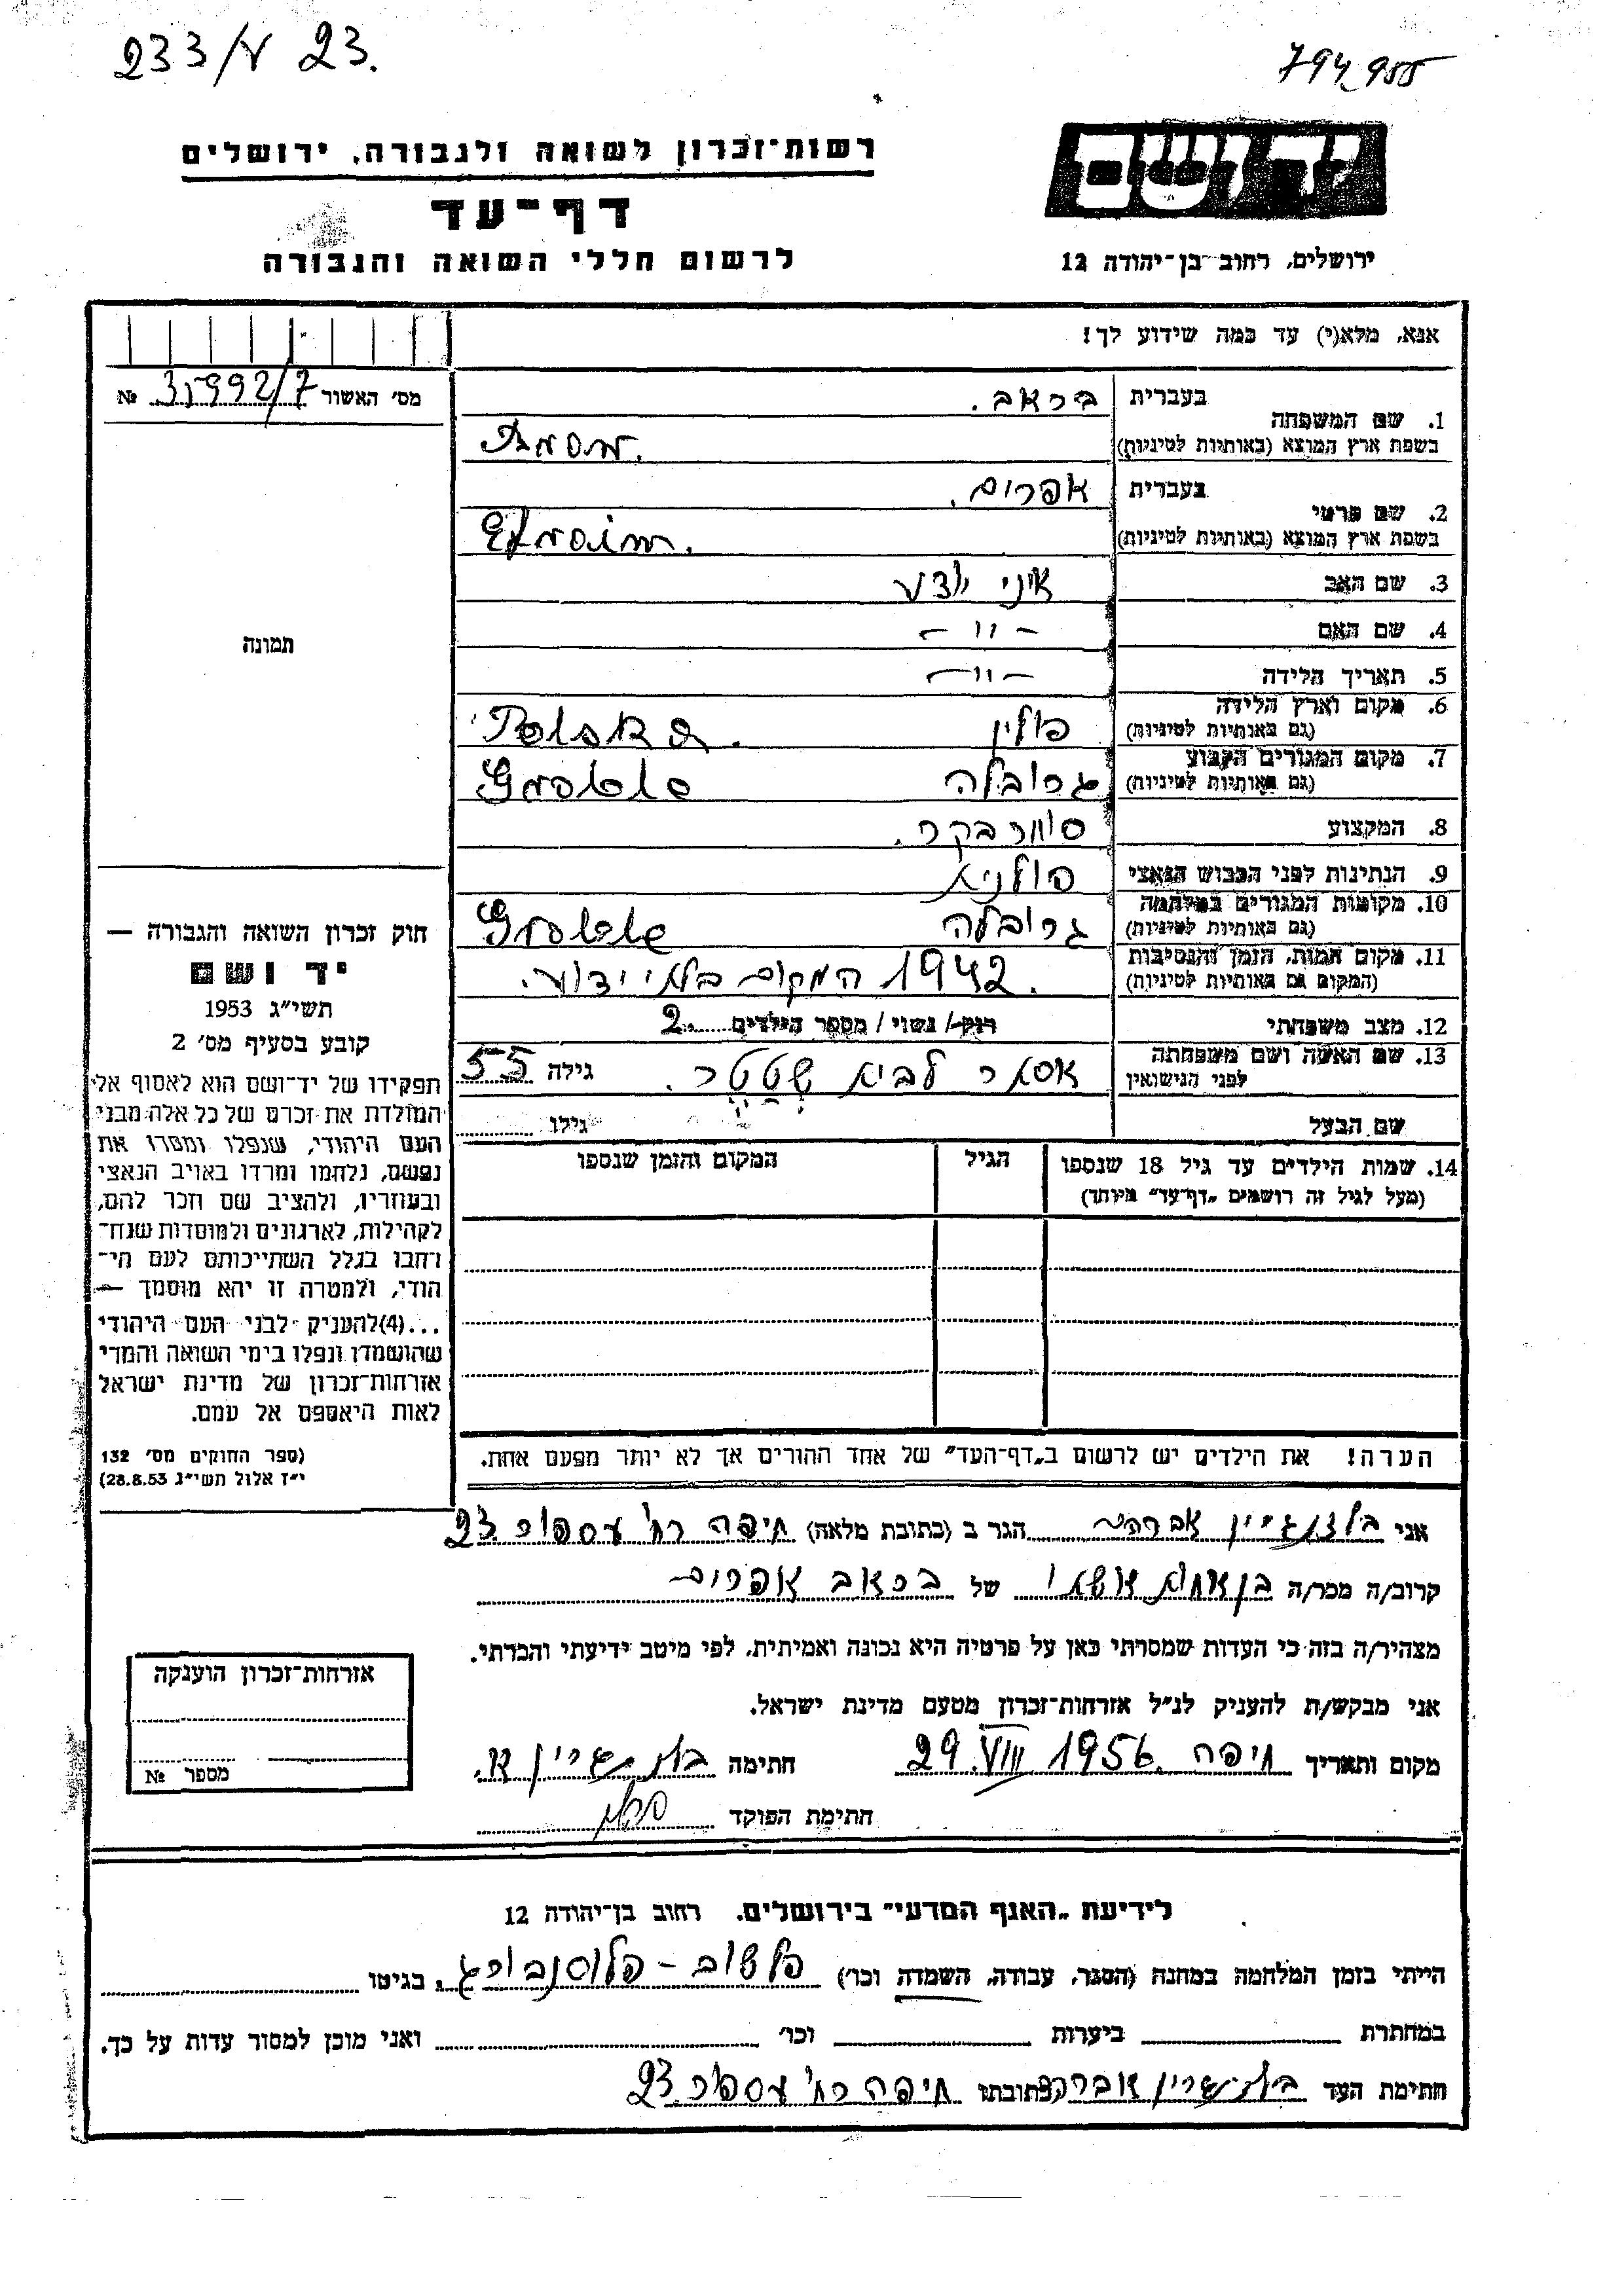 233/V 23.
794,955
רשות־זכרון לשואה ולגבורה, ירושלים
דף־עד
לרשום חללי השואה והגבורה
ידושם
ירושלים, רחוב בן־יהודה 12
אנא, מלא(י) עד כמה שידוע לך!
מס׳ האשור 31992/7 №
1. שם המשפחה
בעברית
בשפת ארץ המוצא (באותיות לטיניות)
2. שם פרטי
בעברית אפרים.
בשפת ארץ המוצא (באותיות לטיניות) Efraim.
3. שם האב איני יודע
4. שם האם –״–
5. תאריך הלידה –״–
6. מקום וארץ הלידה פולין Polska.
(גם באותיות לטיניות)
7. מקום המגורים הקבוע
(גם באותיות לטיניות)
8. המקצוע סוחר בקר.
9. הנתינות לפני הכבוש הנאצי פולנית
10. מקומות המגורים במלחמה
(גם באותיות לטיניות)
11. מקום המות, הזמן והנסיבות 1942 המקום בלתי ידוע.
(המקום גם באותיות לטיניות)
12. מצב משפחתי רוק/ נשוי/ מספר הילדים 2
13. שם האשה ושם משפחתה
לפני הנישואין אסתר לבית גילה 55
שם הבעל גילו
14. שמות הילדים עד גיל 18 שנספו הגיל המקום והזמן שנספו
(מעל לגיל זה רושמים „דף־עד״ מיוחד)
הערה! את הילדים יש לרשום ב„דף־העד״ של אחד ההורים אך לא יותר מפעם אחת.
תמונה
חוק זכרון השואה והגבורה —
יד ושם
תשי״ג 1953
קובע בסעיף מס׳ 2
תפקידו של יד־ושם הוא לאסוף אל
המולדת את זכרם של כל אלה מבני
העם היהודי, שנפלו ומסרו את
נפשם, נלחמו ומרדו באויב הנאצי
ובעוזריו, ולהציב שם וזכר להם,
לקהילות, לארגונים ולמוסדות שנח־
רחבו בגלל השתייכותם לעם הי־
הודי, ולמטרה זו יהא מוסמך —
...(4)להעניק לבני העם היהודי
שהושמדו ונפלו בימי השואה והמרי
אזרחות־זכרון של מדינת ישראל
לאות היאספם אל עמם.
(ספר החוקים מס׳ 132
י״ז אלול תשי״ג 28.8.53)
אני אברהם הגר ב (כתובת מלאה) חיפה רח׳ 23
קרוב/ה מכר/ה של אפרים
מצהיר/ה בזה כי העדות שמסרתי כאן על פרטיה היא נכונה ואמיתית, לפי מיטב ידיעתי והכרתי.
אני מבקש/ת להעניק לנ״ל אזרחות־זכרון מטעם מדינת ישראל.
מקום ותאריך חיפה 29.VIII 1956. חתימה
חתימת הפוקד
אזרחות־זכרון הוענקה
מספר №
לידיעת „האגף המדעי״ בירושלים, רחוב בן־יהודה 12
הייתי בזמן המלחמה במחנה (הסגר, עבודה, השמדה וכו׳) פלשוב – פלוסנבורג, בגיטו
במחתרת ביערות וכו׳ ואני מוכן למסור עדות על כך.
חתימת העד כתובתו חיפה רח׳ 23